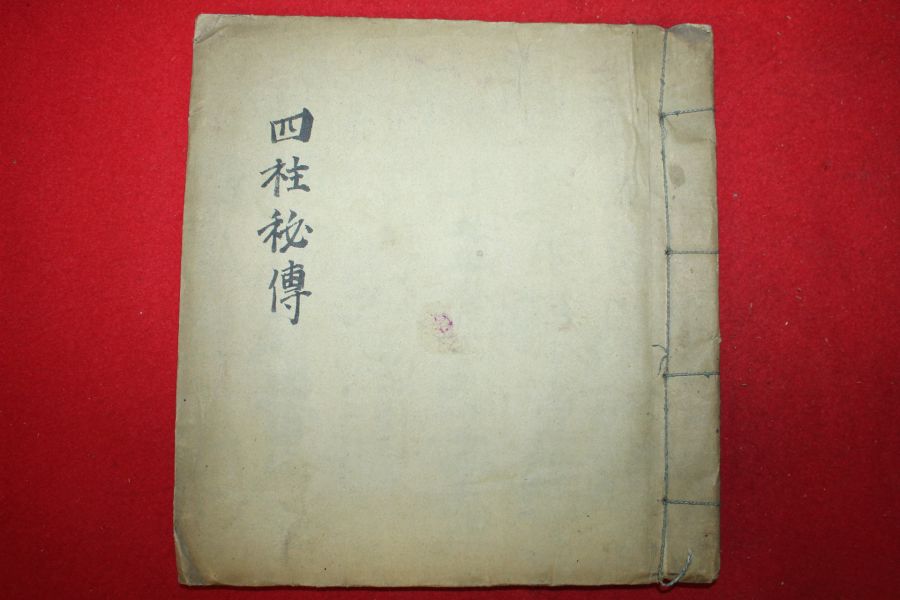 四柱秘傳